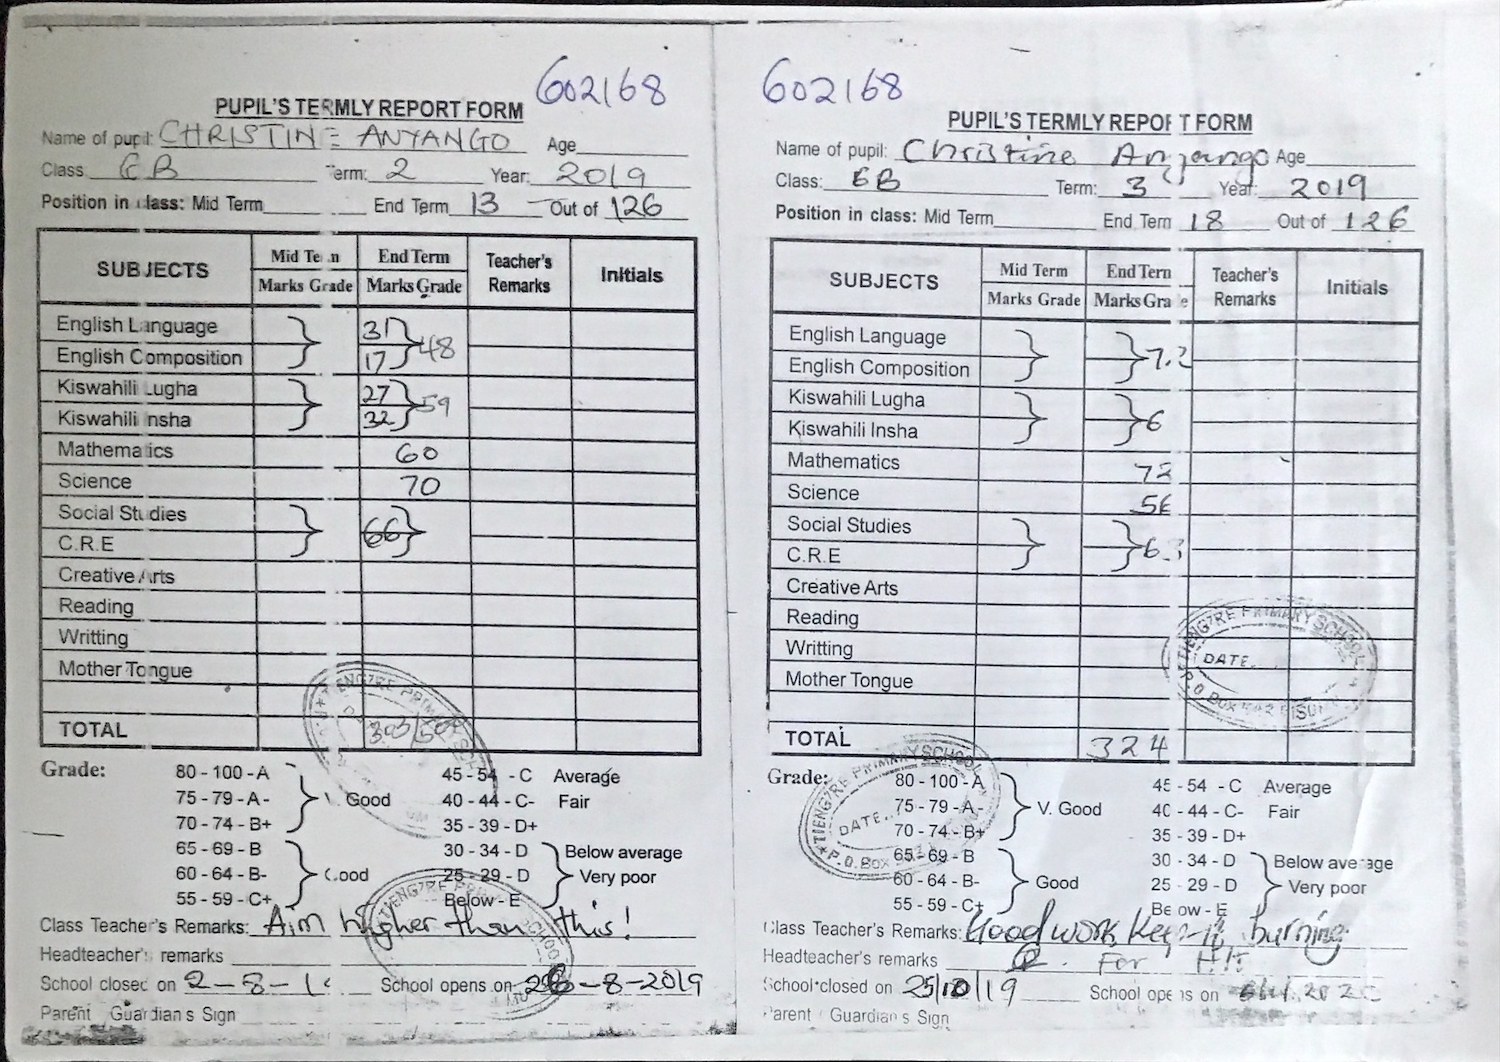 602168
PUPIL'S TERMLY REPORT FORM
Name of pupil: CHRISTINE ANYANGO Age
Class 6B Term: 2 Year: 2019
Position in class: Mid Term End Term 13 Out of 126
SUBJECTS Mid Term End Term Teacher's Remarks Initials
Marks Grade Marks Grade
English Language 31
English Composition 17 48
Kiswahili Lugha 27
Kiswahili Insha 32 59
Mathematics 60
Science 70
Social Studies
C.R.E 66
Creative Arts
Reading
Writting
Mother Tongue
TOTAL 303/500
Grade: 80 - 100 - A 45 - 54 - C Average
75 - 79 - A- V. Good 40 - 44 - C- Fair
70 - 74 - B+ 35 - 39 - D+
65 - 69 - B 30 - 34 - D Below average
60 - 64 - B- Good 25 - 29 - D Very poor
55 - 59 - C+ Below - E
Class Teacher's Remarks: Aim higher than this!
Headteacher's remarks
School closed on 2-8-1 School opens on 26-8-2019
Parent Guardian s Sign
TIENG'RE PRIMARY SCHOOL
602168
PUPIL'S TERMLY REPORT FORM
Name of pupil: Christine Anyango Age
Class: 6B Term: 3 Year: 2019
Position in class: Mid Term End Term 18 Out of 126
SUBJECTS Mid Term End Term Teacher's Remarks Initials
Marks Grade Marks Grade
English Language
English Composition 7
Kiswahili Lugha
Kiswahili Insha 6
Mathematics 72
Science 56
Social Studies
C.R.E 6
Creative Arts
Reading
Writting
Mother Tongue
TOTAL 324
Grade: 80 - 100 - A 45 - 54 - C Average
75 - 79 - A- V. Good 40 - 44 - C- Fair
70 - 74 - B+ 35 - 39 - D+
65 - 69 - B 30 - 34 - D Below average
60 - 64 - B- Good 25 - 29 - D Very poor
55 - 59 - C+ Below - E
Class Teacher's Remarks: Good work keep it burning
Headteacher's remarks For H/T
School closed on 25/10/19 School opens on
Parent Guardian s Sign
TIENG'RE PRIMARY SCHOOL
DATE
P.O. Box
TIENG'RE PRIMARY SCHOOL
DATE
P.O. Box